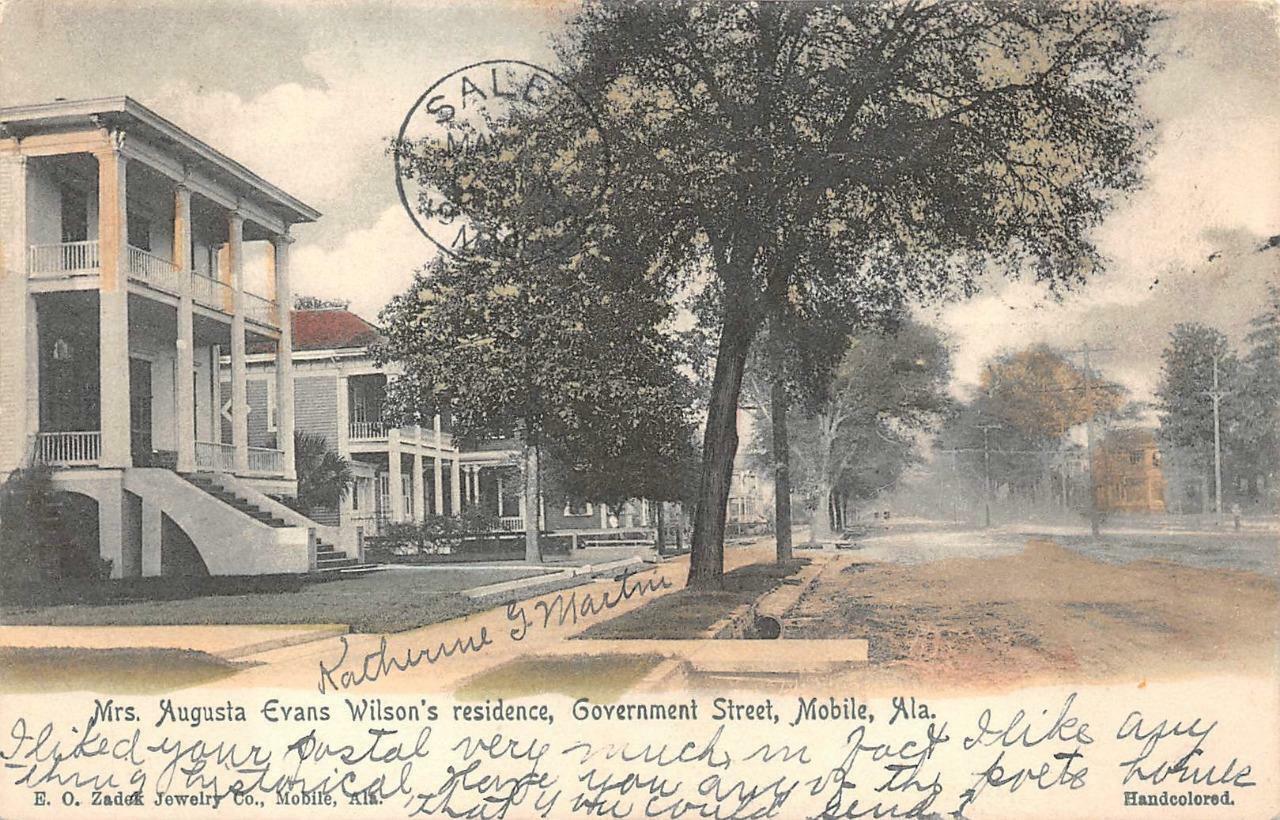 SALE
MA
Katherine G Martin
Mrs. Augusta Evans Wilson's residence, Government Street, Mobile, Ala.
I liked your Postal very much, in fact I like any
thing historical. Have you any of the poets homes
that you could send?
E. O. Zadek Jewelry Co., Mobile, Ala.
Handcolored.